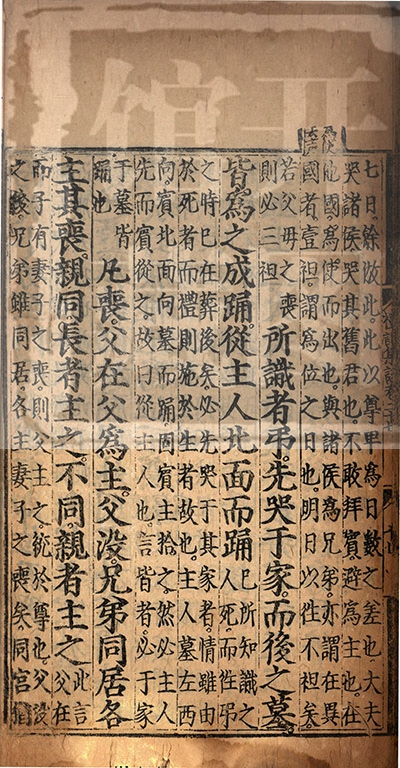 七日餘倣此此以尊卑爲日數之差也大夫
哭諸侯哭其舊君也不敢拜賓避爲主也在
他國爲使而出也與諸侯爲兄弟亦謂在異
國者壹袒謂爲位之日也明日以往不袒矣
若父母之喪
則必三袒
所識者弔先哭于家而後之墓
皆爲之成踊從主人北面而踊
己所知識之
人死而徃弔
之時已在葬後矣必先哭于其家者情雖由
於死者而禮則施於生者故也主人墓左西
向賓北面向墓而踊固賓主拾之然必主人
先而賓從之故曰從主人也言皆者必于家
于墓皆
踊也
凡喪父在父爲主父沒兄弟同居各
主其喪親同長者主之不同親者主之
此言
父在
而子有妻子之喪則父主之統於尊也父沒
之後兄弟雖同居各主妻子之喪矣同宮猶